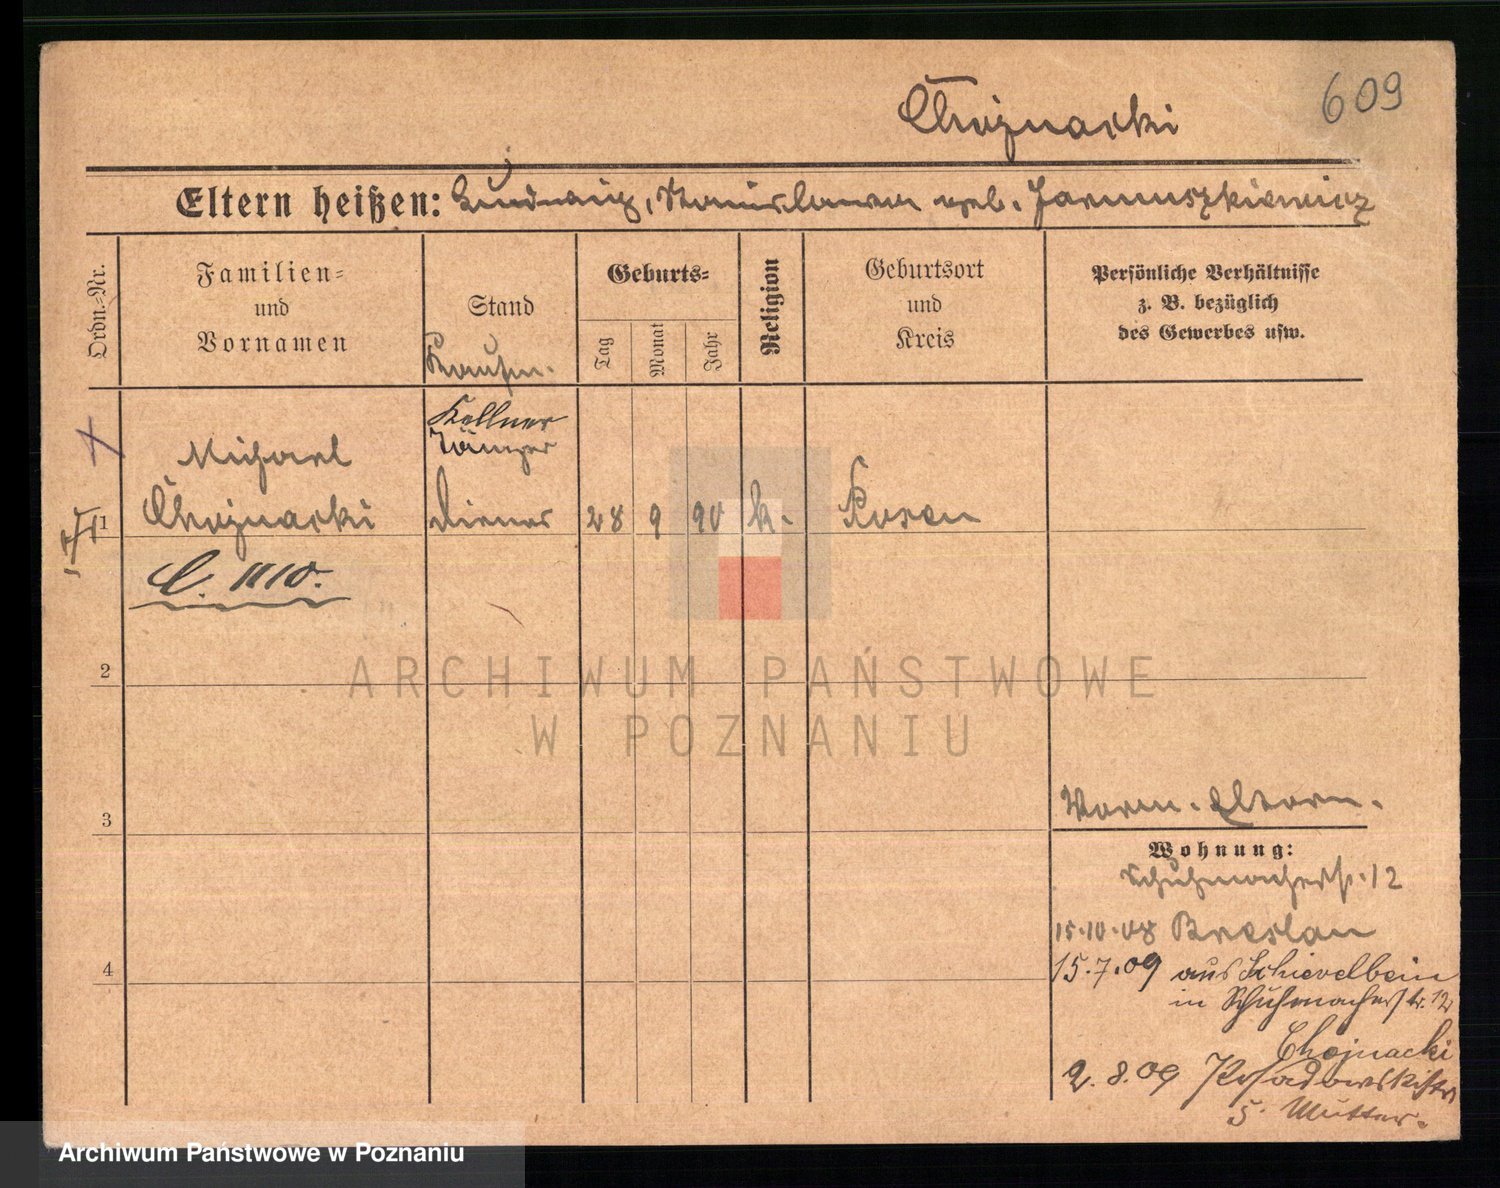 Chojnacki
609
Eltern heißen: Ludwig, Stanislawa geb. Jarmuszkiewicz
Ordn.-Nr.
Familien-
und
Vornamen
Stand
Kaufm.
Geburts-
Tag
Monat
Jahr
Religion
Geburtsort
und
Kreis
Persönliche Verhältnisse
z. B. bezüglich
des Gewerbes usw.
Kellner
Michael
1 Chojnacki Diener 28 9 90 k. Posen
C. 1110.
2
ARCHIWUM PAŃSTWOWE
W POZNANIU
3
Eltern.
Wohnung:
Schuhmacherstr. 12
15.10.08 Breslau
4
15.7.09 aus Schievelbein
in Schuhmacherstr. 12
Chojnacki
2.8.09 Posadowskistr.
5. Mutter.
Archiwum Państwowe w Poznaniu